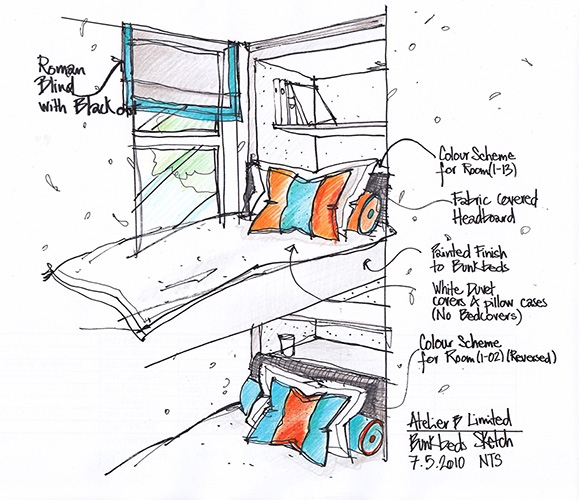 Roman
Blind
with Blackout
Colour Scheme
for Room (1-13)
Fabric Covered
Headboard
Painted Finish
to Bunkbeds
White Duvet
covers & pillow cases
(No Bedcovers)
Colour Scheme
for Room (1-02) (Reversed)
Atelier B Limited
Bunkbeds Sketch
7.5.2010 NTS